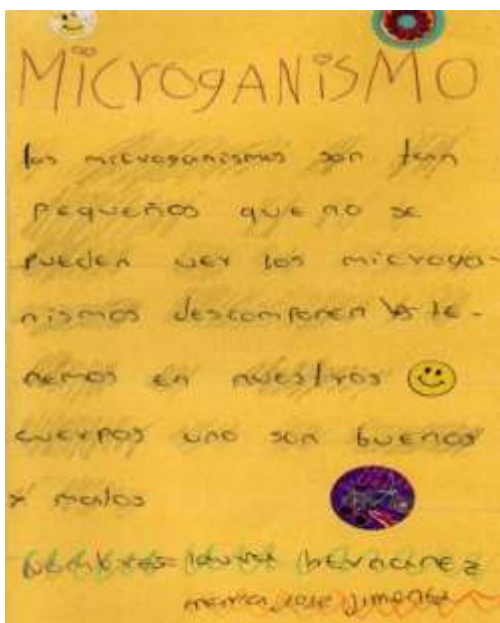 MicrogANiSMO
los microganismos son tan
pequeños que no se
pueden ver los microga-
nismos descomponen te-
nemos en nuestros
cuerpos uno son buenos
y malos
Nombres= laura hernandez
maria jose jimenez